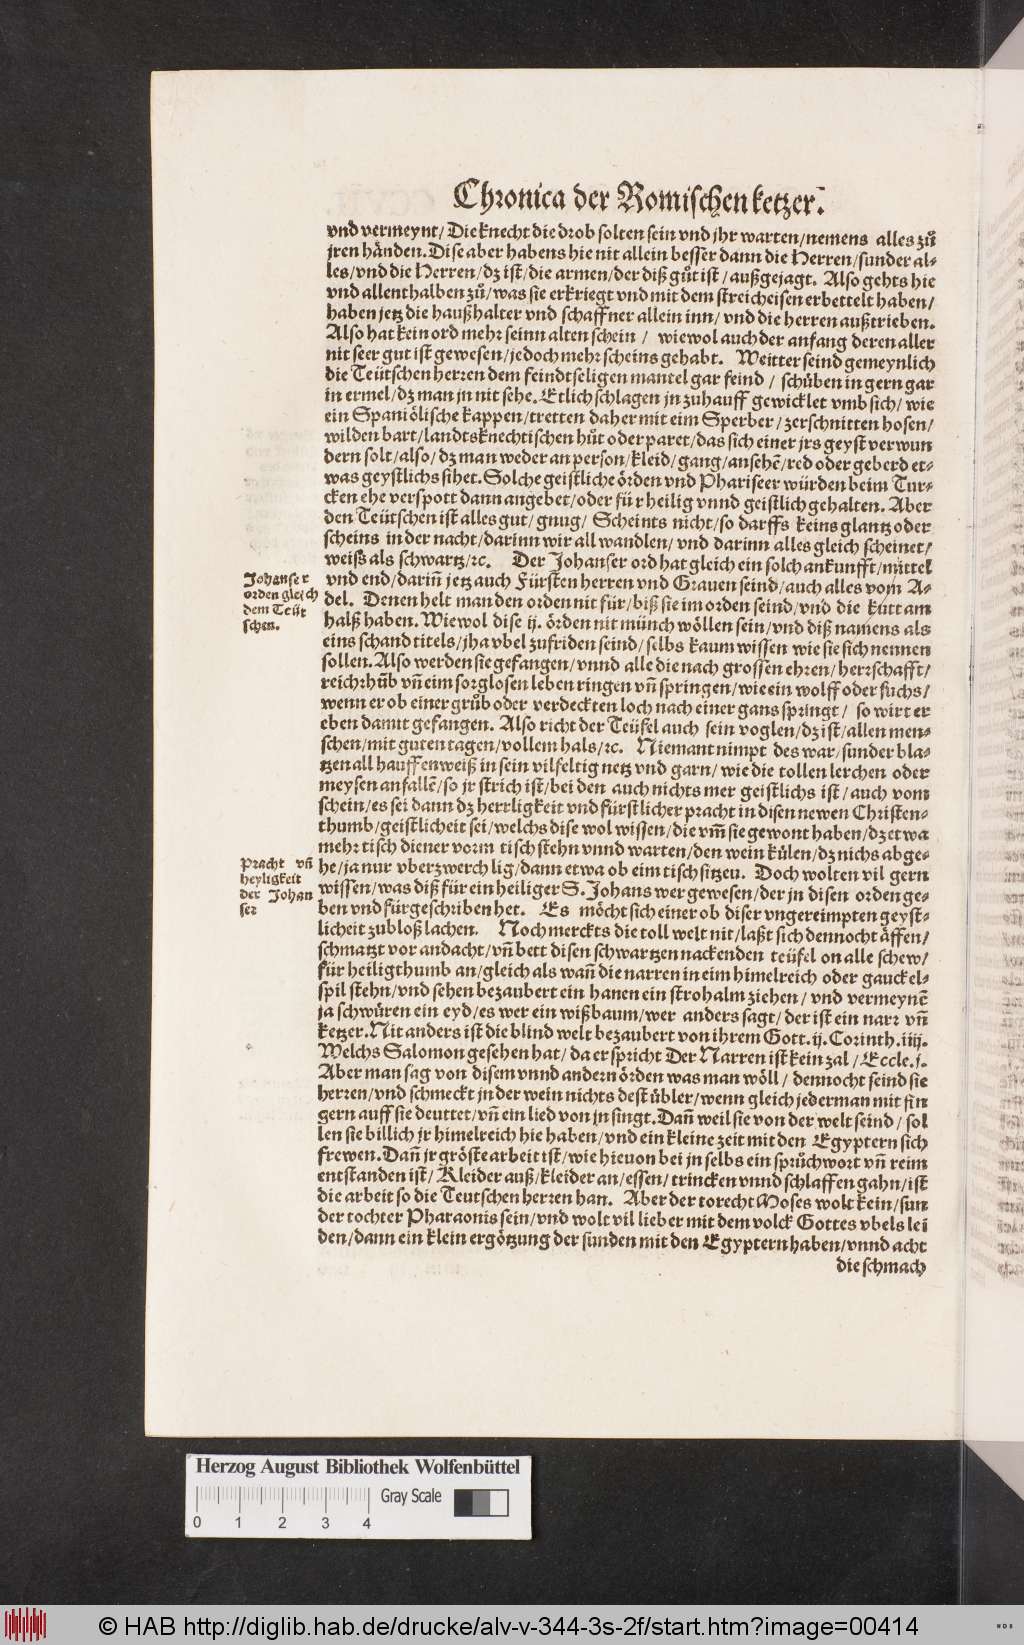 Chronica der Romischen ketzer.
vnd vermeynt/ Die knecht die drob solten sein vnd jhr warten/nemens alles zů
jren händen. Dise aber habens hie nit allein besser dann die Herren/sunder al-
les/vnd die Herren/dz ist/die armen/der diß gůt ist/außgejagt. Also gehts hie
vnd allenthalben zů/was sie erkriegt vnd mit dem streicheisen erbettelt haben/
haben jetz die haußhalter vnd schaffner allein inn/vnd die herren außtrieben.
Also hat kein ord mehr seinn alten schein / wiewol auch der anfang deren aller
nit seer gut ist gewesen/jedoch mehr scheins gehabt. Weitter seind gemeynlich
die Teütschen herren dem feindtseligen mantel gar feind / schüben in gern gar
in ermel/dz man jn nit sehe. Etlich schlagen jn zuhauff gewicklet vmb sich/ wie
ein Spaniölische kappen/tretten daher mit eim Sperber/zerschnitten hosen/
wilden bart/landtsknechtischen hůt oder paret/das sich einer jrs geyst verwun
dern solt/also/dz man weder an person/kleid/gang/ansehē/red oder geberd et-
was geystlichs sihet. Solche geistliche örden vnd Phariseer würden beim Tur-
cken ehe verspott dann angebet/oder für heilig vnnd geistlich gehalten. Aber
den Teütschen ist alles gut/ gnug/ Scheints nicht/so darffs keins glantz oder
scheins in der nacht/darinn wir all wandlen/vnd darinn alles gleich scheinet/
weiß als schwartz/ꝛc. Der Johanser ord hat gleich ein solch ankunfft/mittel
Johanser
orden gleich
dem Teüt
schen.
vnd end/dariñ jetz auch Fürsten herren vnd Grauen seind/auch alles vom A-
del. Denen helt man den orden nit für/biß sie im orden seind/vnd die kutt am
halß haben. Wiewol dise ij. örden nit münch wöllen sein/vnd diß namens als
eins schand titels/jha vbel zufriden seind/selbs kaum wissen wie sie sich nennen
sollen. Also werden sie gefangen/vnnd alle die nach grossen ehren/herrschafft/
reichthūb vñ eim sorglosen leben ringen vñ springen/wie ein wolff oder fuchs/
wenn er ob einer grůb oder verdeckten loch nach einer gans springt/ so wirt er
eben damit gefangen. Also richt der Teüfel auch sein voglen/dz ist/allen men-
schen/mit guten tagen/vollem hals/ꝛc. Niemant nimpt des war/sunder bla-
tzen all hauffenweiß in sein vilfeltig netz vnd garn/wie die tollen lerchen oder
meysen anfallē/so jr strich ist/bei den auch nichts mer geistlichs ist/auch vom
schein/es sei dann dz herrligkeit vnd fürstlicher pracht in disen newen Christen-
thumb/geistlicheit sei/welchs dise wol wissen/die vm̄ sie gewont haben/dz etwa
mehr tisch diener vorm tisch stehn vnnd warten/den wein külen/dz nichs abge-
Pracht vñ
heyligkeit
der Johan
ser
he/ja nur vberzwerch lig/dann etwa ob eim tisch sitzeu. Doch wolten vil gern
wissen/was diß für ein heiliger S. Johans wer gewesen/der jn disen orden ge-
ben vnd fürgeschriben het. Es möcht sich einer ob diser vngereimpten geyst-
licheit zu bloß lachen. Noch merckts die toll welt nit/laßt sich dennocht äffen/
schmatzt vor andacht/vñ bett disen schwartzen nackenden teüfel on alle schew/
für heiligthumb an/gleich als wañ die narren in eim himelreich oder gauckel-
spil stehn/vnd sehen bezaubert ein hanen ein strohalm ziehen/ vnd vermeynē
ja schwüren ein eyd/es wer ein wißbaum/wer anders sagt/der ist ein narr vñ
ketzer. Nit anders ist die blind welt bezaubert von ihrem Gott. ij. Corinth. iiij.
Welchs Salomon gesehen hat/da er spricht Der Narren ist kein zal/Eccle. j.
Aber man sag von disem vnnd andern örden was man wöll/ dennocht seind sie
herren/vnd schmeckt jn der wein nichts dest übler/wenn gleich jederman mit fin
gern auff sie deuttet/vñ ein lied von jn singt. Dañ weil sie von der welt seind/ sol
len sie billich jr himelreich hie haben/vnd ein kleine zeit mit den Egyptern sich
frewen. Dañ jr gröste arbeit ist/wie hieuon bei jn selbs ein sprüchwort vñ reim
entstanden ist/Kleider auß/kleider an/essen/trincken vnnd schlaffen gahn/ist
die arbeit so die Teutschen herren han. Aber der torecht Moses wolt kein/sun
der tochter Pharaonis sein/vnd wolt vil lieber mit dem volck Gottes vbels lei
den/dann ein klein ergötzung der sünden mit den Egyptern haben/vnnd acht
die schmach
Herzog August Bibliothek Wolfenbüttel
Gray Scale
0 1 2 3 4
© HAB http://diglib.hab.de/drucke/alv-v-344-3s-2f/start.htm?image=00414